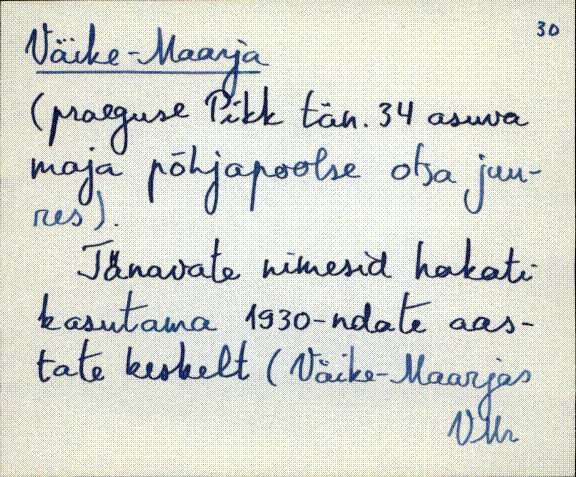 30
Väike-Maarja
(praeguse Pikk tän. 34 asuva
maja põhjapoolse otsa juu-
res).
Tänavate nimesid hakati
kasutama 1930-ndate aas-
tate keskelt (Väike-Maarjas
VMr